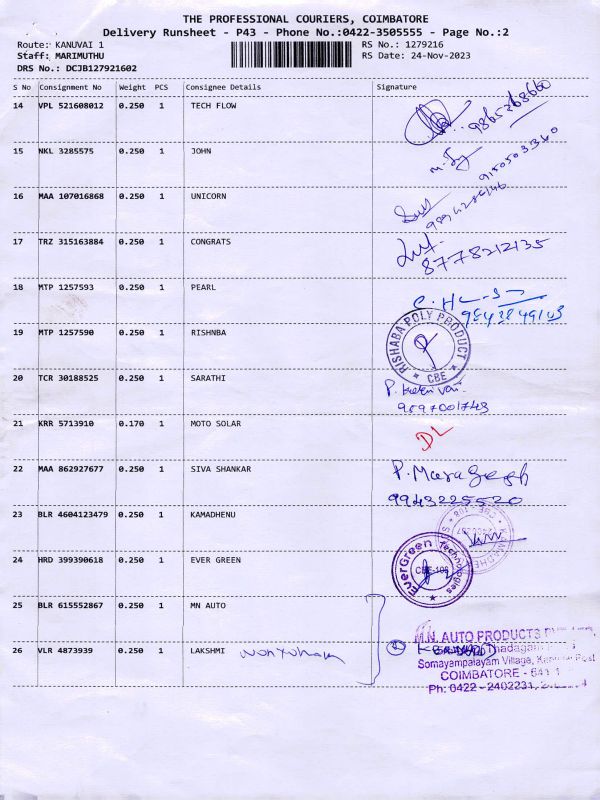 THE PROFESSIONAL COURIERS, COIMBATORE
Delivery Runsheet - P43 - Phone No.:0422-3505555 - Page No.:2
Route: KANUVAI 1 RS No.: 1279216
Staff: MARIMUTHU RS Date: 24-Nov-2023
DRS No.: DCJB127921602
S No Consignment No Weight PCS Consignee Details Signature
14 VPL 521608012 0.250 1 TECH FLOW
15 NKL 3285575 0.250 1 JOHN
16 MAA 107016868 0.250 1 UNICORN
17 TRZ 315163884 0.250 1 CONGRATS
8778212135
18 MTP 1257593 0.250 1 PEARL
19 MTP 1257590 0.250 1 RISHNBA
RISHABA POLY PRODUCT
* CBE *
20 TCR 30188525 0.250 1 SARATHI
9597001743
21 KRR 5713910 0.170 1 MOTO SOLAR
DL
22 MAA 862927677 0.250 1 SIVA SHANKAR
9943225520
23 BLR 4604123479 0.250 1 KAMADHENU
24 HRD 399390618 0.250 1 EVER GREEN
EverGreen Technologies
25 BLR 615552867 0.250 1 MN AUTO
M.N. AUTO PRODUCTS
26 VLR 4873939 0.250 1 LAKSHMI
Somayampalayam Village,
COIMBATORE - 641
Ph: 0422 - 2402231,